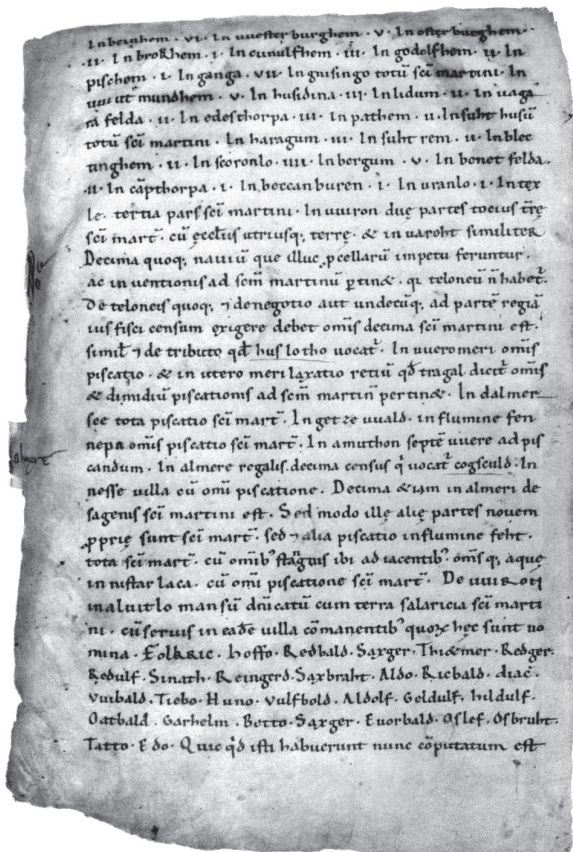 In beinhem · vi · In uuesterburghem · v · In osterburghem ·
· ii · In brokhem · i · In eunulfhem · iii · In godolfhem · ii · In
pischem · i · In ganga · vii · In gnisingo totū sci martini · In
mundhem · v · In husidina · iii · In lidum · ii · In uaga
ra felda · ii · In edesthorpa · iii · In pathem · ii · In suht husū
totū sci martini · In haragum · iii · In suht rem · ii · In blec
tinghem · ii · In scoronlo · iiii · In bergum · v · In benet felda ·
· ii · In cāpthorpa · i · In beccan buren · i · In uranlo · i · In tex
le · tertia pars sci martini · In uuiron duę partes tocius trę
sci mart̄ · cū ęcclīis utriusq; terrę · & in uaroht similiter
Decima quoq; nauiū que illuc pcellarū impetu feruntur ·
ac inuentionis ad scm martinū ptin& · qi teloneū n̄ habet̄ ·
De teloneis quoq; ⁊ denegotio aut undecūq; ad partē regiā
ius fisci censum exigere debet omīs decima sci martini est ·
simil̄ ⁊ de tributo qd hus lotho vocat̄ · In uueromeri omīs
piscatio · & in utero meri laxatio retiū qd tragal dicit̄ omīs
& dimidiū piscationis ad scm martin̄ pertin& · In dalmer
see tota piscatio sci mart̄ · In get ze uuald · in flumine fen
nepa omīs piscatio sci mart̄ · In amuthon septē uuere ad pis
candum · In almere regalis decima census q vocat̄ cogsculd · In
nesse uilla cū omī piscatione · Decima &iam in almeri de
sagenis sci martini est · Sed modo ille alię partes nouem
pprię sunt sci mart̄ · sed ⁊ alia piscatio in flumine feht ·
tota sci mart̄ · cū omīb; stagnis ibi adiacentib; omīsq; aquę
in nistar laca · cū omī piscatione sci mart̄ · De uuiRotī
in aluitlo mansū dnīcatū cum terra salaricia sci marti
ni · cū seruis in eadē uilla cōmanentib; quoꝝ hęc sunt no
mina · Folkric · hoffo · Redbald · Saxger · Thi&mer · Redger ·
Redulf · Sinath · Reingerd · Saxbraht · Aldo · Ricbald · diac̄ ·
Vuibald · Tiebo · Huno · Vulfbold · Aldolf · Geldulf · hildulf ·
Oatbald · Garhelm · Betto · Saxger · Euorbald · Oslef · Osbruht ·
Tatto · Edo · Quic qd isti habuerunt nunc cōputatum est
almere